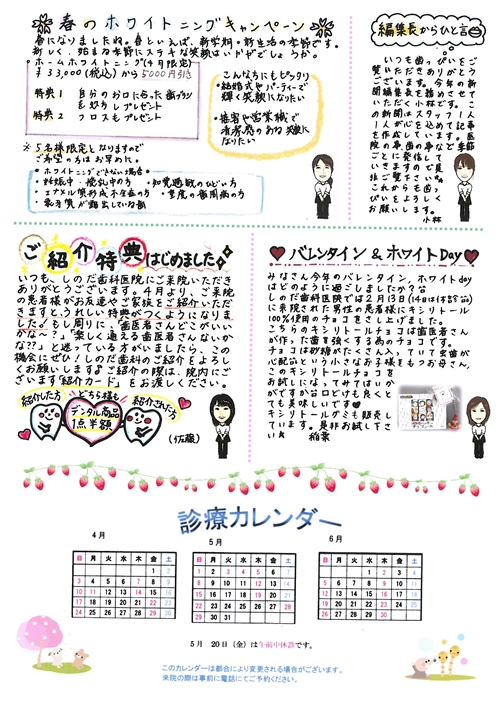 春のホワイトニングキャンペーン
春になりましたね。春といえば、新学期・新生活の季節です。
新しく、始まる季節にステキな笑顔はいかがでしょうか。
・ホームホワイトニング(4月限定)
¥33,000(税込)から5000円引き
特典1 自分のお口に合った歯ブラシ
を好きしプレゼント
特典2 フロスもプレゼント
こんなな方にもピッタリ
・結婚式やパーティーで
輝く笑顔になりたい
・接客や営業職で
清潔感のある笑顔に
なりたい
※5名様限定となりますので
ご希望の方はお早めに。
・ホワイトニングできない場合・
・妊娠中・授乳中の方 ・知覚過敏のひどい方
・エナメル質形成不全の方 ・重度の歯周病の方
・象牙質が露出している歯
編集長からひと言
いつも歯っぴぃをご
覧いただきありがとう
ございます。今年の新
聞編集長を務めさせて
いただく小林です。こ
の新聞はスタッフ1人
1人が心を込めて記事
を作成しています。医
院の事、歯の事など季節
ごとに発信して
いきますので是
非ご覧下さい。
これからも歯っ
ぴぃをよろしく
お願いします。
小林
ご紹介特典はじめました
いつも、しのだ歯科医院にご来院いただき
ありがとうございます。4月より、ご来院
の患者様がお友達やご家族をご紹介いただ
きますとうれしい特典がつくようになりま
した。もし周りに、「歯医者さんどこがいい
かな〜?」「楽しく通える歯医者さんないか
な??」と迷っている方がいましたら、この
機会にぜひ!しのだ歯科のご紹介をよろし
くお願いします。ご紹介の際は、院内にご
ざいます「紹介カード」をお渡しください。
紹介した方
どちら様も
紹介された方
デンタル商品
1点半額
(佐藤)
バレンタイン & ホワイトDay
みなさん今年のバレンタイン、ホワイトday
はどのように過ごしましたか?
しのだ歯科医院では2月13日(14日は休診日)
に来院された男性の患者様にキシリトール
100%使用のチョコをさし上げました。
こちらのキシリトールチョコは歯医者さん
が作った歯を強くする為のチョコです。
チョコは砂糖がたくさん入っていて虫歯が
心配という小さなお子様をもつお母さん、
このキシリトールチョコを
お試しになってみてはいか
がですか?口どけも良くと
ても美味しいです♥
キシリトールガムも販売し
ています。是非お試し下さ
い 稲葉
診療カレンダー
4月
5月
6月
日 月 火 水 木 金 土
1 2
3 4 5 6 7 8 9
10 11 12 13 14 15 16
17 18 19 20 21 22 23
24 25 26 27 28 29 30
日 月 火 水 木 金 土
1 2 3 4 5 6 7
8 9 10 11 12 13 14
15 16 17 18 19 20 21
22 23 24 25 26 27 28
29 30 31
日 月 火 水 木 金 土
1 2 3 4
5 6 7 8 9 10 11
12 13 14 15 16 17 18
19 20 21 22 23 24 25
26 27 28 29 30
5月 20日(金)は午前中休診です。
このカレンダーは都合により変更される場合がございます。
来院の際は事前に電話にてご予約ください。